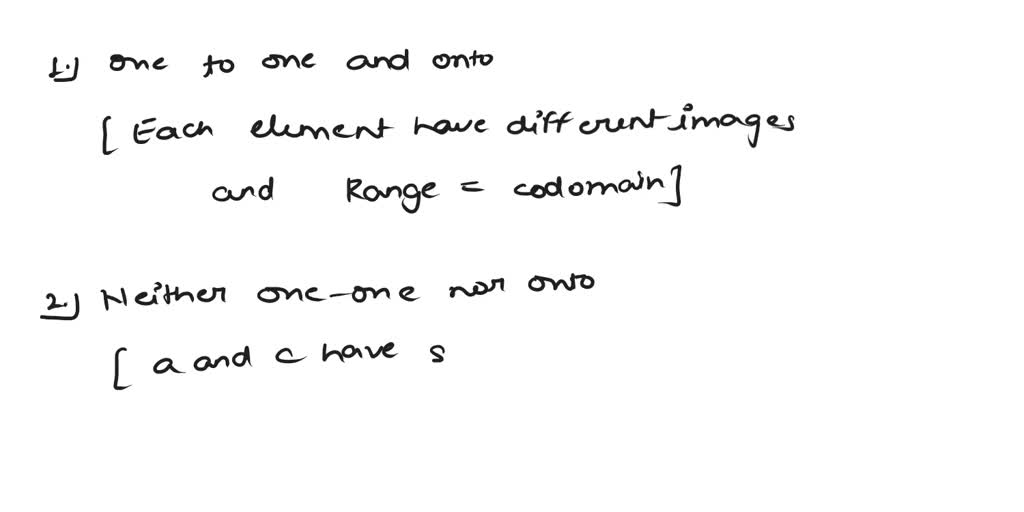 1.) one to one and onto
[Each element have different images
and Range = codomain]
2.) Neither one-one nor onto
[a and c have s